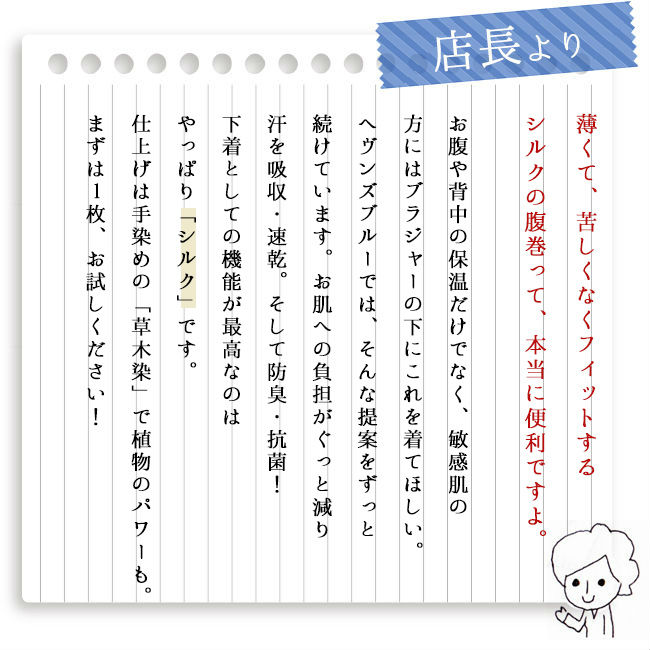 店長より
薄くて、苦しくなくフィットする
シルクの腹巻って、本当に便利ですよ。
お腹や背中の保温だけでなく、敏感肌の
方にはブラジャーの下にこれを着てほしい。
ヘヴンズブルーでは、そんな提案をずっと
続けています。お肌への負担がぐっと減り
汗を吸収・速乾。そして防臭・抗菌！
下着としての機能が最高なのは
やっぱり「シルク」です。
仕上げは手染めの「草木染」で植物のパワーも。
まずは1枚、お試しください！